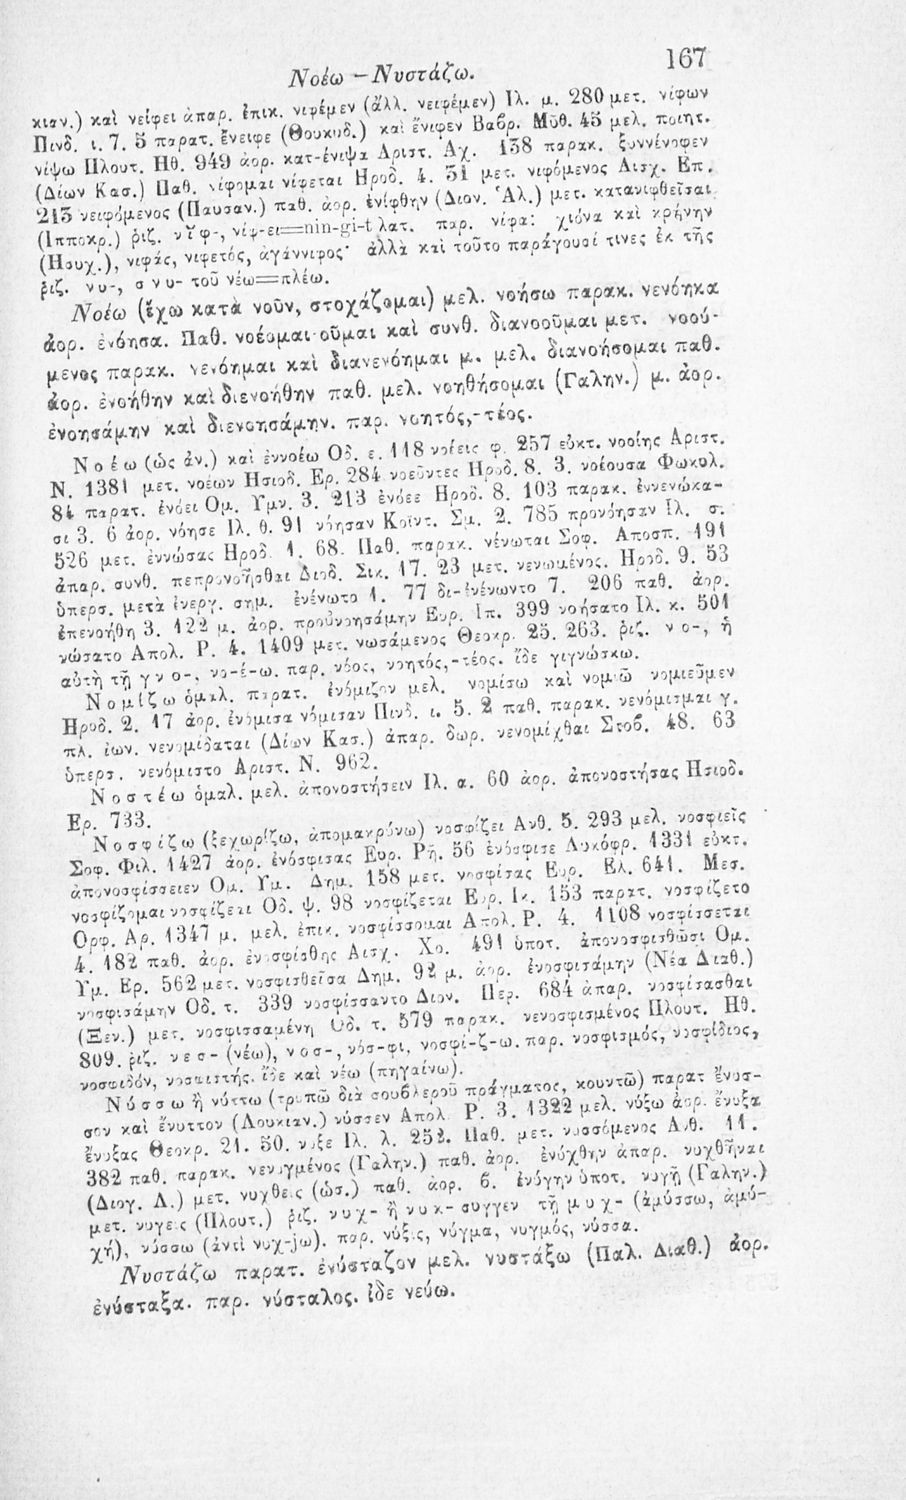 Νοέω — Νυστάζω. 167
κιαν.) καὶ νείφει ἀπαρ. ἐπικ. νιφέμεν (ἄλλ. νειφέμεν) Ἰλ. μ. 280 μετ. νίφων
Πινδ. ι. 7. 5 παρατ. ἔνειφε (Θουκυδ.) καὶ ἔνιφεν Βαβρ. Μῦθ. 45 μελ. ποιητ.
νίψω Πλουτ. Ηθ. 949 ἀορ. κατ-ένιψα Αριστ. Αχ. 138 παρακ. ξυννένοφεν
(Δίων Κασ.) Παθ. νίφομαι νίφεται Ηροδ. 4. 31 μετ. νιφόμενος Αισχ. Επ.
213 νειφόμενος (Παυσαν.) παθ. ἀορ. ἐνίφθην (Διον. Ἀλ.) μετ. κατανιφθεῖσαι
(Ιπποκρ.) ῥιζ. νῐφ-, νίφ-ει=nin-gi-t λατ. παρ. νίφα: χιόνα καὶ κρήνην
(Ησυχ.), νιφάς, νιφετός, ἀγάννιφος· ἀλλὰ καὶ τοῦτο παράγουσί τινες ἐκ τῆς
ῥιζ. νυ-, σνυ- τοῦ νέω=πλέω.
Νοέω (ἔχω κατὰ νοῦν, στοχάζομαι) μελ. νοήσω παρακ. νενόηκα
ἀορ. ἐνόησα. Παθ. νοέομαι-οῦμαι καὶ συνθ. διανοοῦμαι μετ. νοού-
μενος παρακ. νενόημαι καὶ διανενόημαι μ. μελ. διανοήσομαι παθ.
ἀορ. ἐνοήθην καὶ διενοήθην παθ. μελ. νοηθήσομαι (Γαλην.) μ. ἀορ.
ἐνοησάμην καὶ διενοησάμην. παρ. νοητός,-τέος.
Νοέω (ὡς ἀν.) καὶ ἐννοέω Οδ. ε. 118 νοέεις φ. 257 εὐκτ. νοοίης Αριστ.
Ν. 1381 μετ. νοέων Ησιοδ. Ερ. 284 νοεῦντες Ηροδ. 8. 3. νοέουσα Φωκυλ.
84 παρατ. ἐνόει Ομ. Υμν. 3. 213 ἐνόεε Ηροδ. 8. 103 παρακ. ἐννενώκα-
σι 3. 6 ἀορ. νόησε Ιλ. θ. 91 νόησαν Κοϊντ. Σμ. 2. 785 προνόησαν Ιλ. σ.
526 μετ. ἐννώσας Ηροδ. 1. 68. Παθ. παρακ. νένωται Σοφ. Αποσπ. 191
ἀπαρ. συνθ. πεπρονοῆσθαι Διοδ. Σικ. 17. 23 μετ. νενωμένος. Ηροδ. 9. 53
ὑπερσ. μετὰ ἐνεργ. σημ. ἐνένωτο 1. 77 δι-ενένωντο 7. 206 παθ. ἀορ.
ἐπενοήθη 3. 122 μ. ἀορ. προὐνοησάμην Ευρ. Ιπ. 399 νοήσατο Ιλ. κ. 501
νώσατο Απολ. Ρ. 4. 1409 μετ. νωσάμενος Θεοκρ. 25. 263. ῥιζ. νο-, ἡ
αὐτὴ τῇ γνο-, νο-έ-ω. παρ. νόος, νοητός,-τέος. ἴδε γιγνώσκω.
Νομίζω ὁμαλ. παρατ. ἐνόμιζον μελ. νομίσω καὶ νομιῶ νομιεῦμεν
Ηροδ. 2. 17 ἀορ. ἐνόμισα νόμισαν Πινδ. ι. 5. 2 παθ. παρακ. νενόμισμαι γ.
πλ. ἰων. νενομίδαται (Δίων Κασ.) ἀπαρ. δωρ. νενομίχθαι Στοβ. 48. 63
ὑπερσ. νενόμιστο Αριστ. Ν. 962.
Νοστέω ὁμαλ. μελ. ἀπονοστήσειν Ιλ. α. 60 ἀορ. ἀπονοστήσας Ησιοδ.
Ερ. 733.
Νοσφίζω (ξεχωρίζω, ἀπομακρύνω) νοσφίζει Ανθ. 5. 293 μελ. νοσφιεῖς
Σοφ. Φιλ. 1427 ἀορ. ἐνόσφισας Ευρ. Ρή. 56 ἐνόσφισε Λυκόφρ. 1331 εὐκτ.
ἀπονοσφίσσειεν Ομ. Υμ. Δημ. 158 μετ. νοσφίσας Ευρ. Ελ. 641. Μεσ.
νοσφίζομαι νοσφίζεαι Οδ. ψ. 98 νοσφίζεται Ευρ. Ικ. 153 παρατ. νοσφίζετο
Ορφ. Αρ. 1347 μ. μελ. ἐπικ. νοσφίσσομαι Απολ. Ρ. 4. 1108 νοσφίσσεται
4. 182 παθ. ἀορ. ἐνοσφίσθης Αισχ. Χο. 491 ὑποτ. ἀπονοσφισθῶσι Ομ.
Υμ. Ερ. 562 μετ. νοσφισθεῖσα Δημ. 92 μ. ἀορ. ἐνοσφισάμην (Νέα Διαθ.)
νοσφισάμην Οδ. τ. 339 νοσφίσσαντο Διον. Περ. 684 ἀπαρ. νοσφίσασθαι
(Ξεν.) μετ. νοσφισσαμένη Οδ. τ. 579 παρακ. νενοσφισμένος Πλουτ. Ηθ.
809. ῥιζ. νεσ- (νέω), νοσ-, νόσ-φι, νοσφί-ζ-ω. παρ. νοσφισμός, νοσφίδιος,
νοσφιδόν, νοσφιστής. ἴδε καὶ νέω (πηγαίνω).
Νύσσω ἢ νύττω (τρυπῶ διὰ σουβλεροῦ πράγματος, κουντῶ) παρατ ἔνυσ-
σον καὶ ἔνυττον (Λουκιαν.) νύσσεν Απολ. Ρ. 3. 1322 μελ. νύξω ἀορ. ἔνυξα
ἔνυξας Θεοκρ. 21. 50. νυξε Ιλ. λ. 252. Παθ. μετ. νυσσόμενος Ανθ. 11.
382 παθ. παρακ. νενυγμένος (Γαλην.) παθ. ἀορ. ἐνύχθην ἀπαρ. νυχθῆναι
(Διογ. Λ.) μετ. νυχθεὶς (ὡσ.) παθ. ἀορ. β. ἐνύγην ὑποτ. νυγῇ (Γαλην.)
μετ. νυγεὶς (Πλουτ.) ῥιζ. νυχ- ἢ νυκ- συγγεν τῇ μυχ- (ἀμύσσω, ἀμυ-
χή), νύσσω (ἀντὶ νυχ-jω). παρ. νύξις, νύγμα, νυγμός, νύσσα.
Νυστάζω παρατ. ἐνύσταζον μελ. νυστάξω (Παλ. Διαθ.) ἀορ.
ἐνύσταξα. παρ. νύσταλος. ἴδε νεύω.